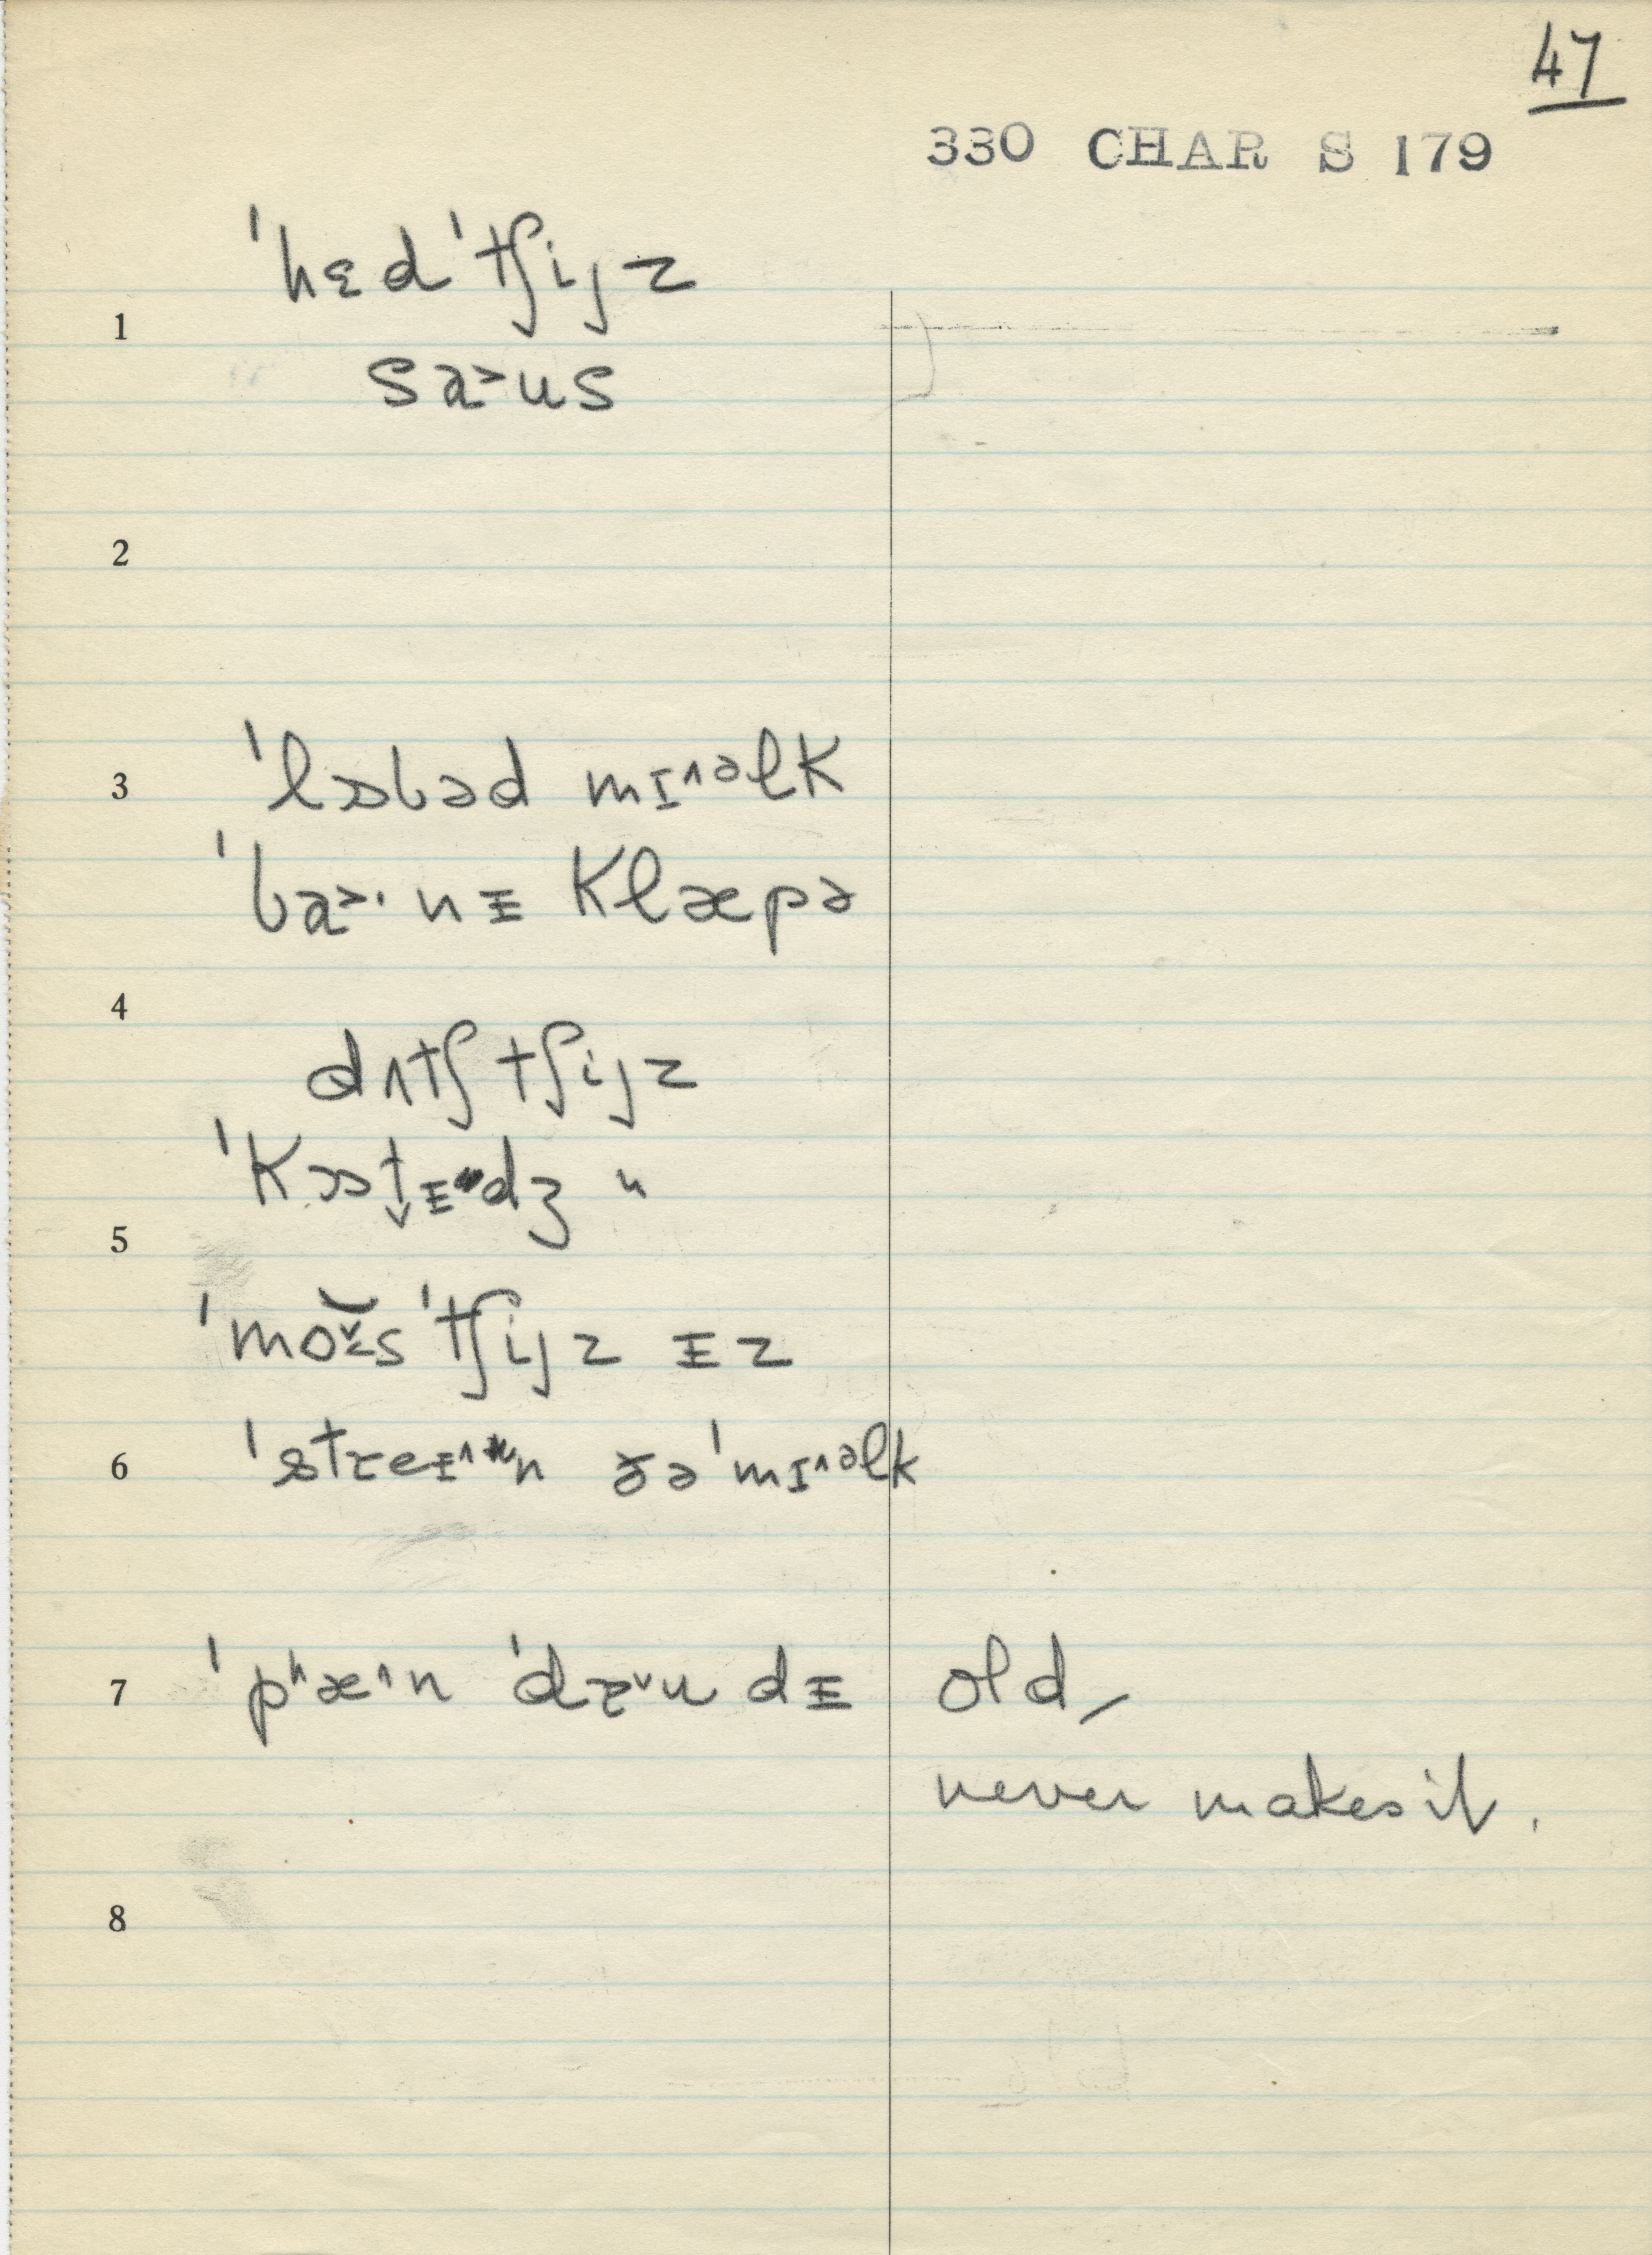 47
330 CHAR S 179
ˈhɛd ˈtʃijz
1
sa˃us
2
3 ˈlɒbəd mɪ^əlk
ˈba˃· nɪ klæpə
4
dʌtʃ tʃijz
ˈkɒt̬ɪdʒ "
5
ˈmo̬ɪs ˈtʃijz ɪz
6 ˈstreɪ^n ðə ˈmɪ^əlk
7 ˈpʰæ^n ˈdɾ˅u dɪ old,
never makes it.
8